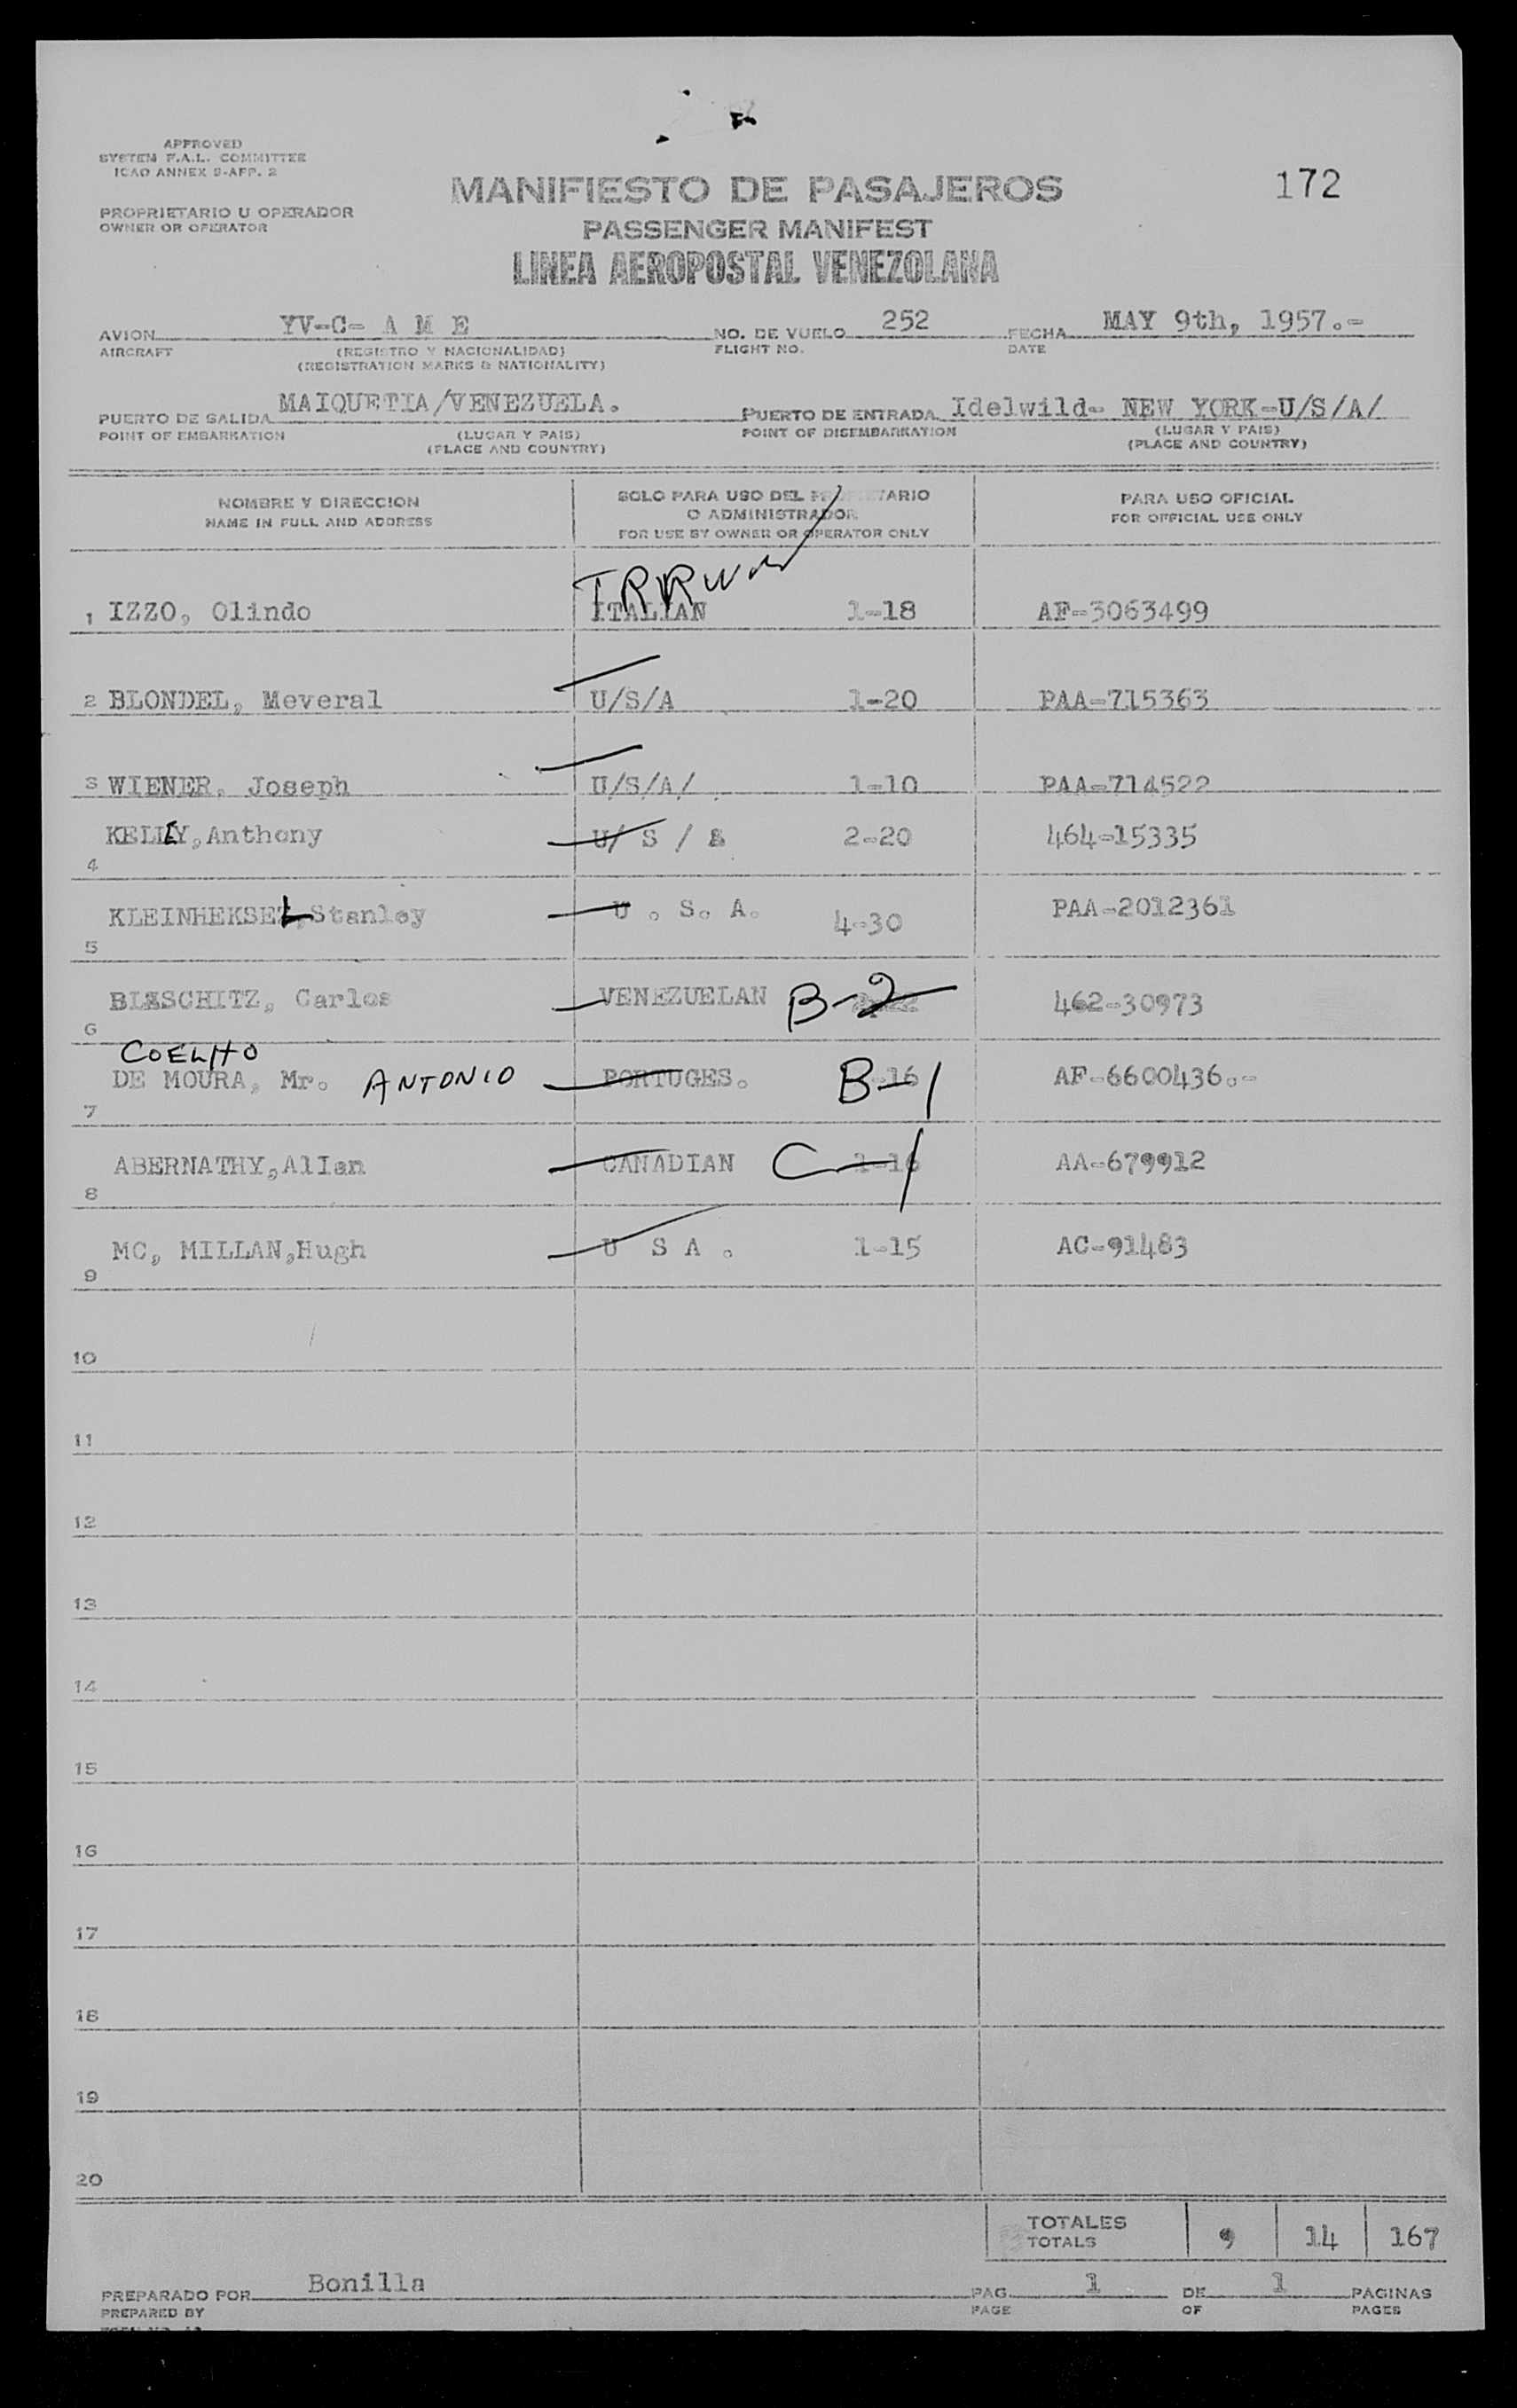 APPROVED
SYSTEM F.A.L. COMMITTEE
ICAO ANNEX 9-APP. 2
MANIFIESTO DE PASAJEROS
172
PROPRIETARIO U OPERADOR
OWNER OR OPERATOR
PASSENGER MANIFEST
LINEA AEROPOSTAL VENEZOLANA
AVION YV-C- A M E NO. DE VUELO 252 FECHA MAY 9th, 1957.-
AIRCRAFT (REGISTRO Y NACIONALIDAD) FLIGHT NO. DATE
(REGISTRATION MARKS & NATIONALITY)
PUERTO DE SALIDA MAIQUETIA/VENEZUELA. PUERTO DE ENTRADA Idelwild- NEW YORK-U/S/A/
POINT OF EMBARKATION (LUGAR Y PAIS) POINT OF DISEMBARKATION (LUGAR Y PAIS)
(PLACE AND COUNTRY) (PLACE AND COUNTRY)
NOMBRE Y DIRECCION SOLO PARA USO DEL PARA USO OFICIAL
NAME IN FULL AND ADDRESS O ADMINISTRADOR FOR OFFICIAL USE ONLY
FOR USE BY OWNER OR OPERATOR ONLY
1 IZZO, Olindo ITALIAN 1-18 AF-3063499
2 BLONDEL, Meveral U/S/A 1-20 PAA-715363
3 WIENER, Joseph U/S/A/ 1-10 PAA-714522
KELLY, Anthony U/ S / A 2-20 464-15335
4
KLEINHEKSEL, Stanley U . S. A. 4-30 PAA-2012361
5
Carlos VENEZUELAN B-2 462-30973
6
COELHO
DE MOURA, Mr. ANTONIO PORTUGES. B-1 -16 AF-6600436.-
7
ABERNATHY, AlIan CANADIAN C-1 1-16 AA-679912
8
MC, MILLAN,Hugh U S A . 1-15 AC-91483
9
10
11
12
13
14
15
16
17
18
19
20
TOTALES 9 14 167
TOTALS
PREPARADO POR Bonilla PAG. 1 DE 1 PAGINAS
PREPARED BY PAGE OF PAGES